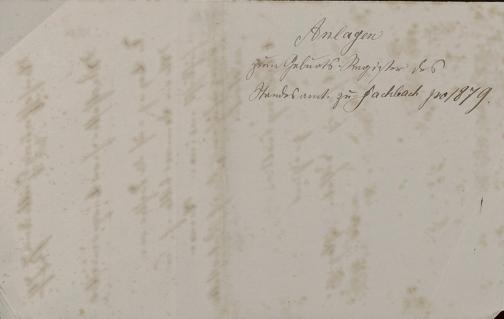 Anlagen
zum Geburts-Register des
Standesamts zu Fachbach pro 1879.